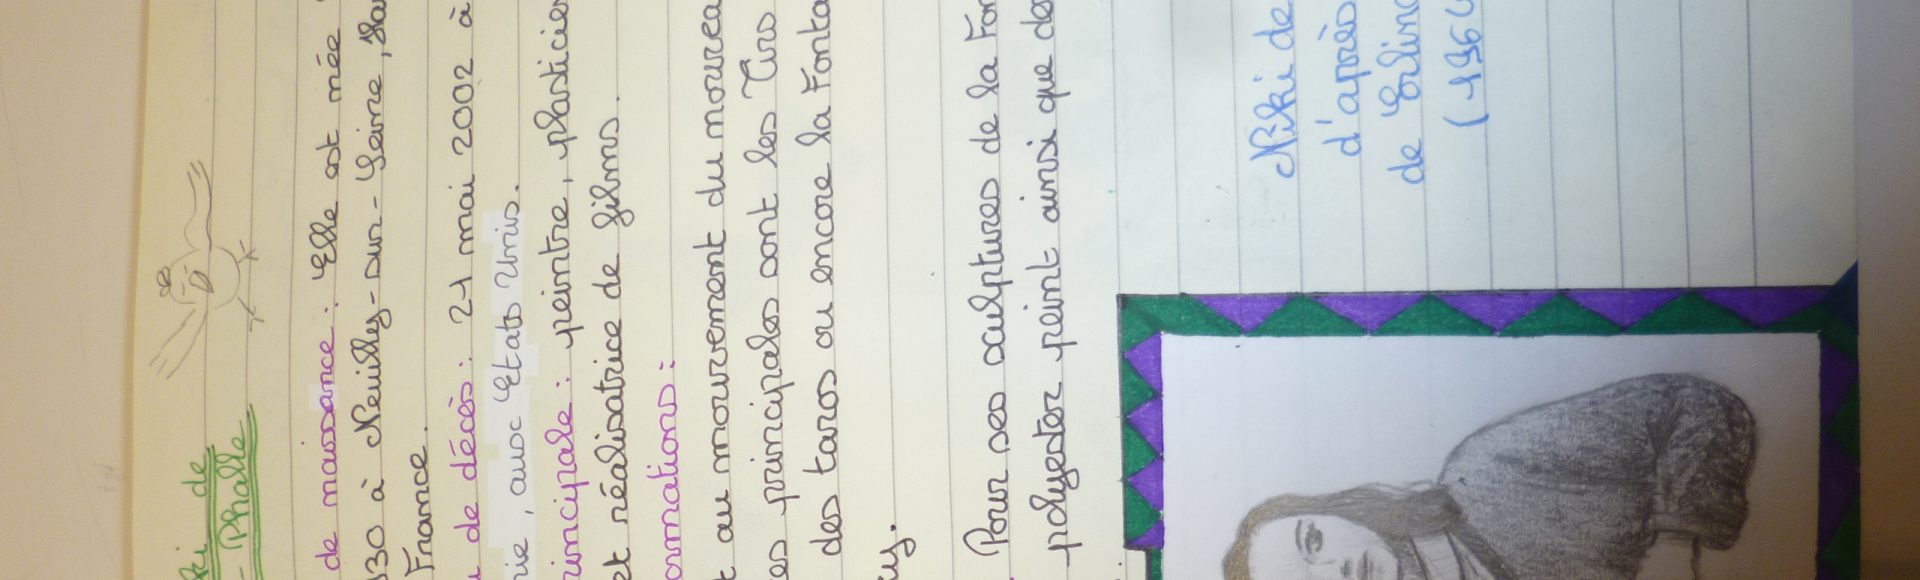 ki de
- Phalle
de naissance : Elle est née
930 à Neuilly-sur-Seine,
France.
de décès : 21 mai 2002 à
nie, aux Etats Unis.
rincipale : peintre, plasticien
et réalisatrice de films.
ormations :
t au mouvement du nouveau
es principales sont les Tirs
des taros ou encore la Fonta
Pour ses sculptures de la Fon
polyester peint ainsi que des
Niki de
d'après
de
(196